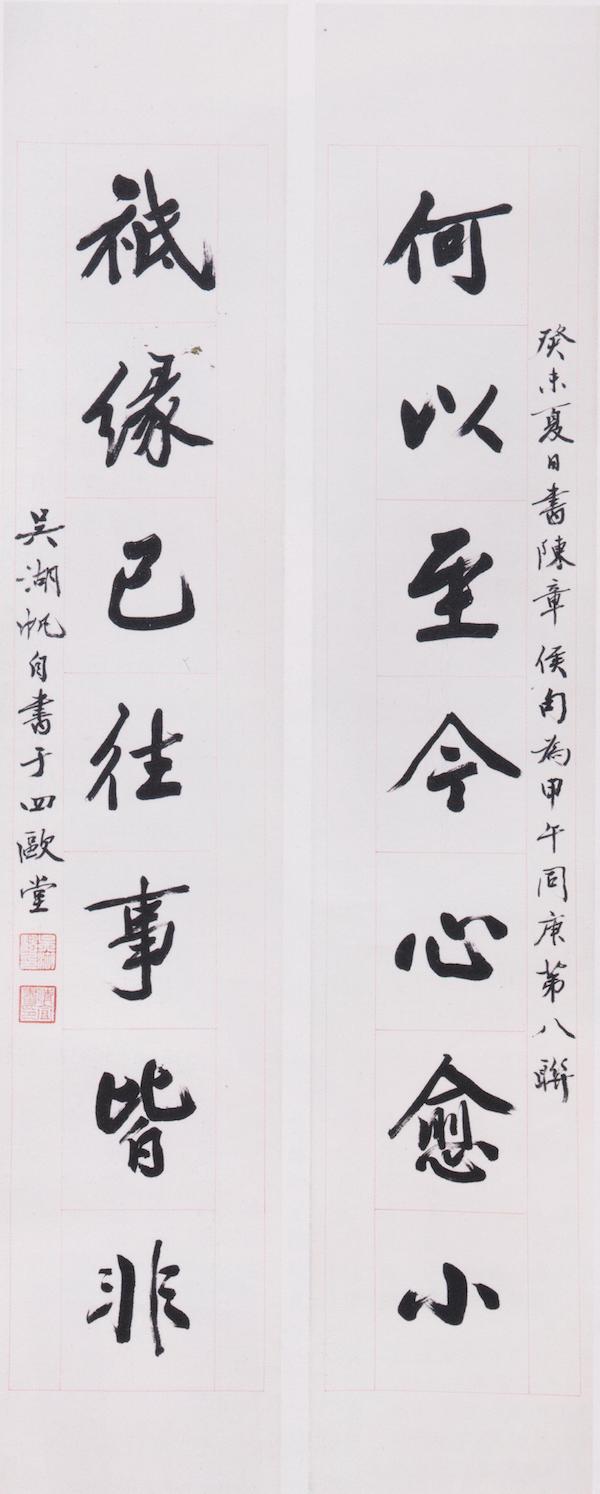 癸未夏日書陳章侯句為甲午同庚第八聯
何以至今心愈小
祗緣已往事皆非
吳湖帆自書于四歐堂